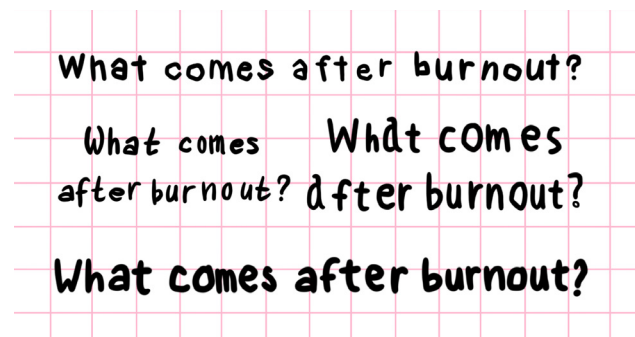 What comes after burnout?
What comes
after burnout?
What comes
after burnout?
What comes after burnout?